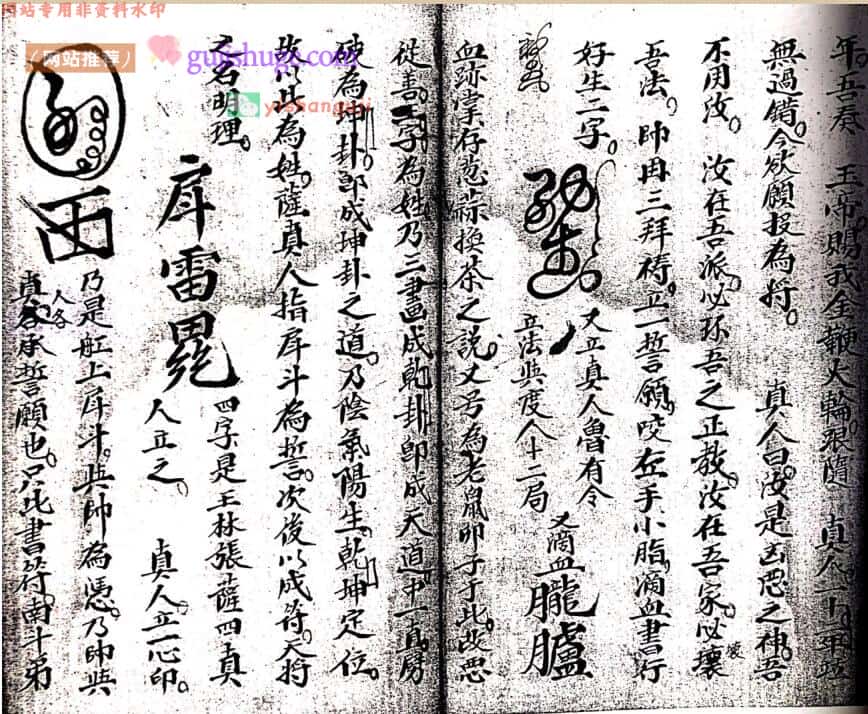 年。吾奏 玉帝賜我金鞭火輪。跟隨 真人十二年並
無過備。今欲願投為将。 真人曰。汝是凶惡之神。吾
不用汝。汝在吾派。必环吾之正教。汝在吾家。必壞
吾法。帥再三拜祷。立一誓願。咬左手小脂。滴血書行
好生二字。
又立真人魯有令
立法與度人十二局
又滴血 朧臚
血跡掌存葱蒜換茶之說。又号為老鼠卯子于此。改惡
從善。二字為姓。乃三畫成乾卦。即成天道。中一直房
破為坤卦。即成坤卦之道。乃陰氣陽生。乾坤定位。
故以此為姓。薩真人指斗為誓。次後以成符。天将
之名明理。
雷
四字是王林張薩四真
人立之。 真人立一心印。
西
乃是舡上斗。與帥為憑。乃帥與
真人各承誓願也。只此書符。南斗弟
网站专用非资料水印
（网站推荐）
guishuge.com
yishangqiji